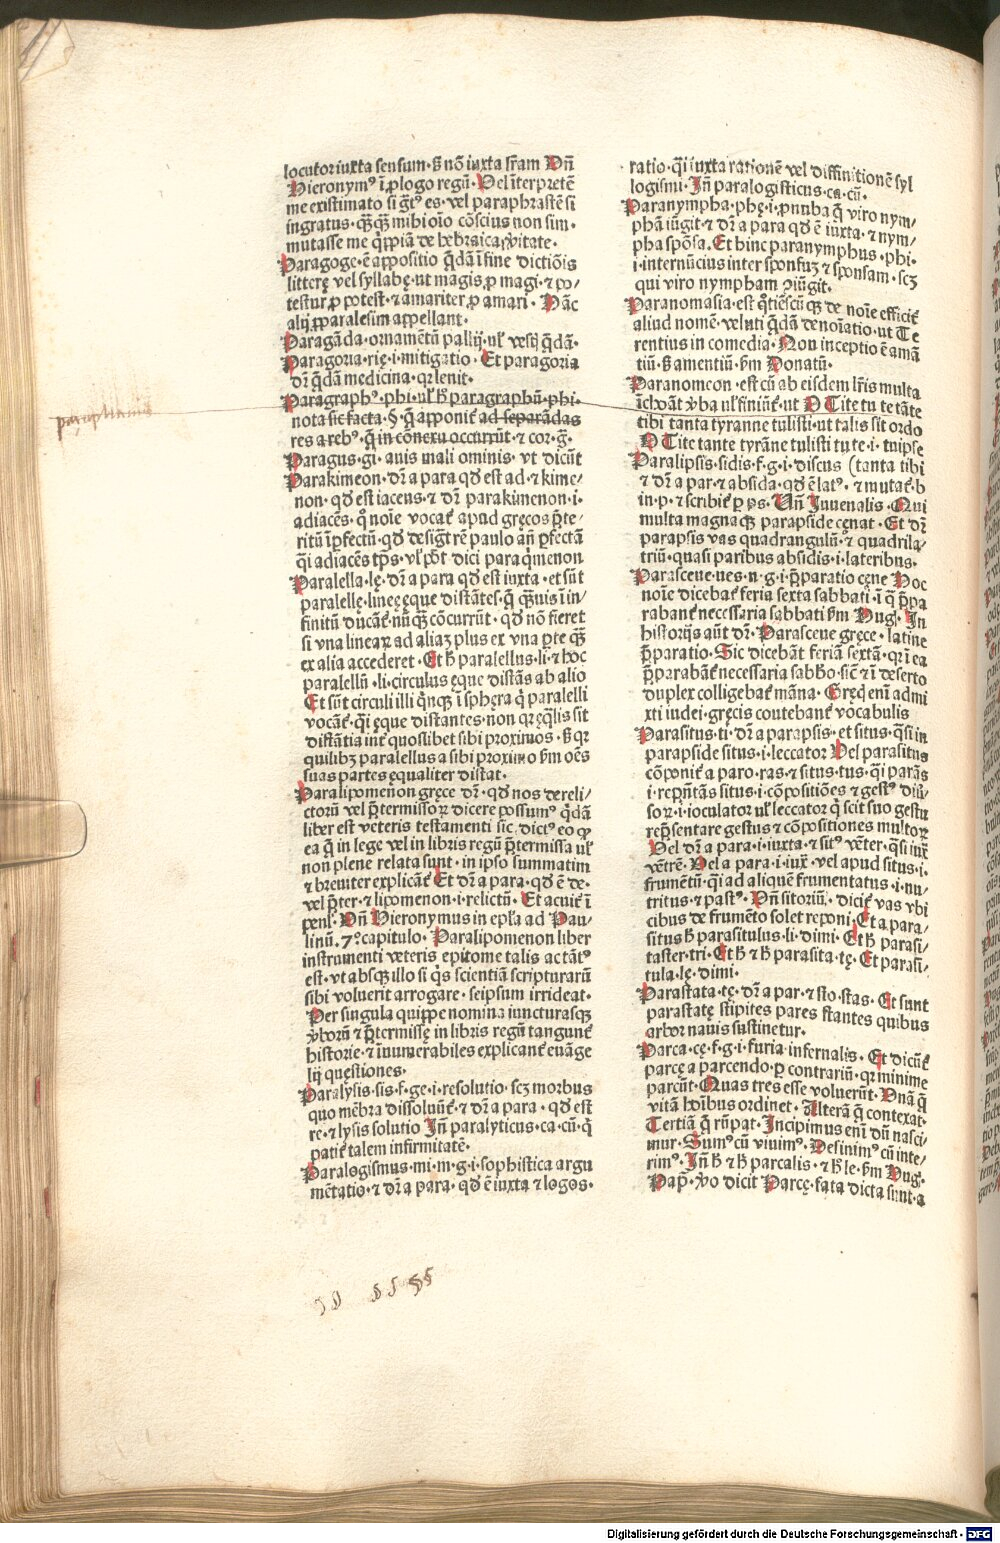 locutor iuxta sensum· sꝫ nō iuxta lr̃am Vñ
Hieronymꝰ ī ꝓlogo regū· Vel īterpretē
me existimato si ḡtꝰ es· vel paraphrastē si
ingratus· qꝫqꝫ mihi oīo cōscius non sim·
mutasse me q̇ppiā de hebraica ṽitate·
Paragoge· ē appositio q̄dā ī fine dictiōis
litterę vel syllabę· ut magis ꝓ magi· ⁊ po-
testur ꝓ potest· ⁊ amariter ꝓ amari· Hāc
alij ꝓparalesim appellant·
Paragāda· ornamētū pallij· ul̓ vestꝭ q̄dā·
Paragoria· rię· i· mitigatio· Et paragoria
dr̄ q̄dā medicina· qꝛ lenit·
Paragraphꝰ· phi· ul̓ h̓ paragraphū· phi·
nota sic facta· §· q̄ apponit̄ ad separādas
res a rebꝰ· q̄ in cōnexu occurrūt· ⁊ cor· g̃·
paraphamis
Paragus· gi· auis mali ominis· vt dicūt
Parakimeon· dr̄ a para qd̓ est ad· ⁊ kime-
non· qd̓ est iacens· ⁊ dr̄ parakimenon· i·
adiacēs· q̊ noīe vocāt apud gręcos p̄te-
ritū īꝑfectū· qd̓ desigt̄ rē paulo an̄ ꝑfectā
q̄i adiacēs tp̄s· vl̓ pōt dici para q̇menon
Paralella· lę· dr̄ a para qd̓ est iuxta· et sūt
paralellę· lineę ęque distātes· q̄ qꝫuis ī in-
finitū ducāt̄· nūqꝫ cōcurrūt· qd̓ nō fieret
si vna linearꝝ ad aliaꝫ plus ex vna ꝑte qꝫ
ex alia accederet· Et h̓ paralellus· li· ⁊ hoc
paralellū· li· circulus ęque distās ab alio
Et sūt circuli illi q̇nqꝫ ī sphęra q̇ paralelli
vocāt̄· q̄i ęque distantes· non qꝛ ęq̄lis sit
distātia int̄ quoslibet sibi proximos· sꝫ qꝛ
quilibꝫ paralellus a sibi proximo ẜm oēs
suas partes equaliter distat·
Paralipomenon gręce dr̄· qd̓ nos dereli-
ctorū vel p̄termissoꝝ dicere possumꝰ q̄dā
liber est veteris testamenti sic dictꝰ eo ꝙ
ea q̄ in lege vel in libris regū p̄termissa ul̓
non plene relata sunt· in ipso summatim
⁊ breuiter explicāt̄ Et dr̄ a para· qd̓ ē de·
vel p̄ter· ⁊ lipomenon· i· relictū· Et acuit̄ ī
penl̓· Vñ Hieronymus in epl̃a ad Pau-
linū· 7º capitulo· Paralipomenon liber
instrumenti veteris epitome talis ac tātꝰ
est· vt absqꝫ illo si q̇s scientiā scripturarū
sibi voluerit arrogare· seipsum irrideat·
Per singula quippe nomina iuncturasqꝫ
ṽborū ⁊ p̄termissę in libris regū tangunt̄
historie· ⁊ īnumerabiles explicant̄ euāge
lij questiones·
Paralysis· sis· f· ge· i· resolutio· scꝫ morbus
quo mēbra dissoluūt̄· ⁊ dr̄ a para· qd̓ est
re· ⁊ lysis solutio Iñ paralyticus· ca· cū· q̇
patit̄ talem infirmitatē·
Paralogismus· mi· m· g· i· sophistica argu
mētatio· ⁊ dr̄ a para· qd̓ ē iuxta ⁊ logos·
ratio· q̄i iuxta rationē vel diffinitionē syl
logismi· Iñ paralogisticus· ca· cū·
Paranympha· phę· i· ꝓnuba q̄ viro nym-
phā iūgit· ⁊ dr̄ a para qd̓ ē iuxta· ⁊ nym-
pha spōsa· Et hinc paranymphus· phi·
i· internūcius inter sponsuꝫ ⁊ sponsam· scꝫ
qui viro nympham ꝯiūgit·
Paranomasia· est q̊tiēscūqꝫ de noīe efficit̄
aliud nomē· veluti q̄dā denoīatio· ut Te
rentius in comedia· Non inceptio ē amā
tiū· sꝫ amentiū· ẜm Donatū·
Paranomeon· est cū ab eisdem lr̃is multa
īchoāt ṽba ul̓ finiūt̄· ut O Tite tu te tāte
tibi tanta tyranne tulisti· ut talis sit ordo
O Tite tante tyrāne tulisti tu te· i· tuipse
Paralipsis· sidis· f· g· i· discus (tanta tibi
⁊ dr̄ a par· ⁊ absida· qd̓ ē latꝰ· ⁊ mutat̄· b
in· p· ⁊ scribit̄ ꝑ ps· Vñ Iuuenalis· Qui
multa magnaqꝫ parapside cęnat· Et dr̄
parapsis vas quadrangulū· ⁊ quadrila-
triū· quasi paribus absidis· i· lateribus·
Parasceue· ues· n· g· i· p̄paratio cęne Hoc
noīe dicebat̄ feria sexta sabbati· ī q̄ p̄pa
rabant̄ necessaria sabbati ẜm Hug· In
historijs aūt dr̄· Parasceue gręce· latine
p̄paratio· Sic dicebāt feriā sextā· qꝛ ī ea
p̄parabāt̄ necessaria sabbo· sic̄ ⁊ ī deserto
duplex colligebat̄ māna· Gręci enī admi
xti iudei· gręcis coutebant̄ vocabulis
Parasitus· ti· dr̄ a parapsis· et situs· q̄si in
parapside situs· i· leccator Vel parasitus
cōponit̄ a paro· ras· ⁊ situs· tus· q̄i parās
i· rep̄ntās situs· i· cōpositiōes ⁊ gestꝰ diū-
soꝝ· i· ioculator ul̓ leccator q̇ scit suo gestu
rep̄sentare gestus ⁊ cōpositiones multoꝝ
Vel dr̄ a para· i· iuxta· ⁊ sitꝰ vēter· q̄si iux̄
vētrē· Vel a para· i· iux̄· vel apud situs· i·
frumētū· q̄i ad aliquē frumentatus· i· nu-
tritus ⁊ pastꝰ· Vñ sitoriū· dicit̄ vas vbi
cibus de frumēto solet reponi· Et a para-
situs h̓ parasitulus· li· dimi· Et h̓ parasi-
taster· tri· Et h̓ ⁊ h̓ parasita· tę· Et parasi-
tula· lę· dimi·
Parastata· tę· dr̄ a par· ⁊ sto· stas· Et sunt
parastatę stipites pares stantes quibus
arbor nauis sustinetur·
Parca· cę· f· g· i· furia infernalis· Et dicūt̄
parcę a parcendo· ꝑ contrariū· qꝛ minime
parcūt· Quas tres esse voluerūt· Vnā q̄
vitā hoībus ordinet· Alterā q̄ contexat·
Tertiā q̄ rūpat· Incipimus enī dū nasci-
mur· Sumꝰ cū viuimꝰ· Desinimꝰ cū inte-
rimꝰ· Iñ h̓ ⁊ h̓ parcalis· ⁊ h̓ le· ẜm Hug·
Pap̄· ṽo dicit Parcę· fata dicta sunt· a
§§ §§
Digitalisierung gefördert durch die Deutsche Forschungsgemeinschaft · DFG